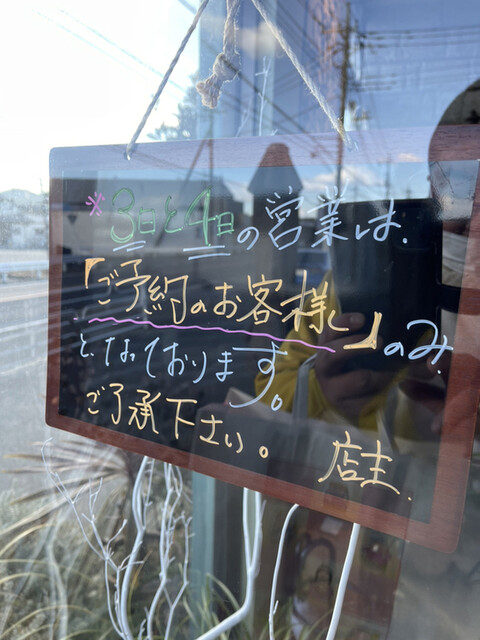 *3日と4日の営業は、
「ご予約のお客様」のみ
となっております。
ご了承下さい。 店主.